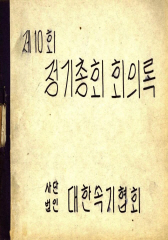 제10회
정기총회 회의록
사단
법인 대한속기협회